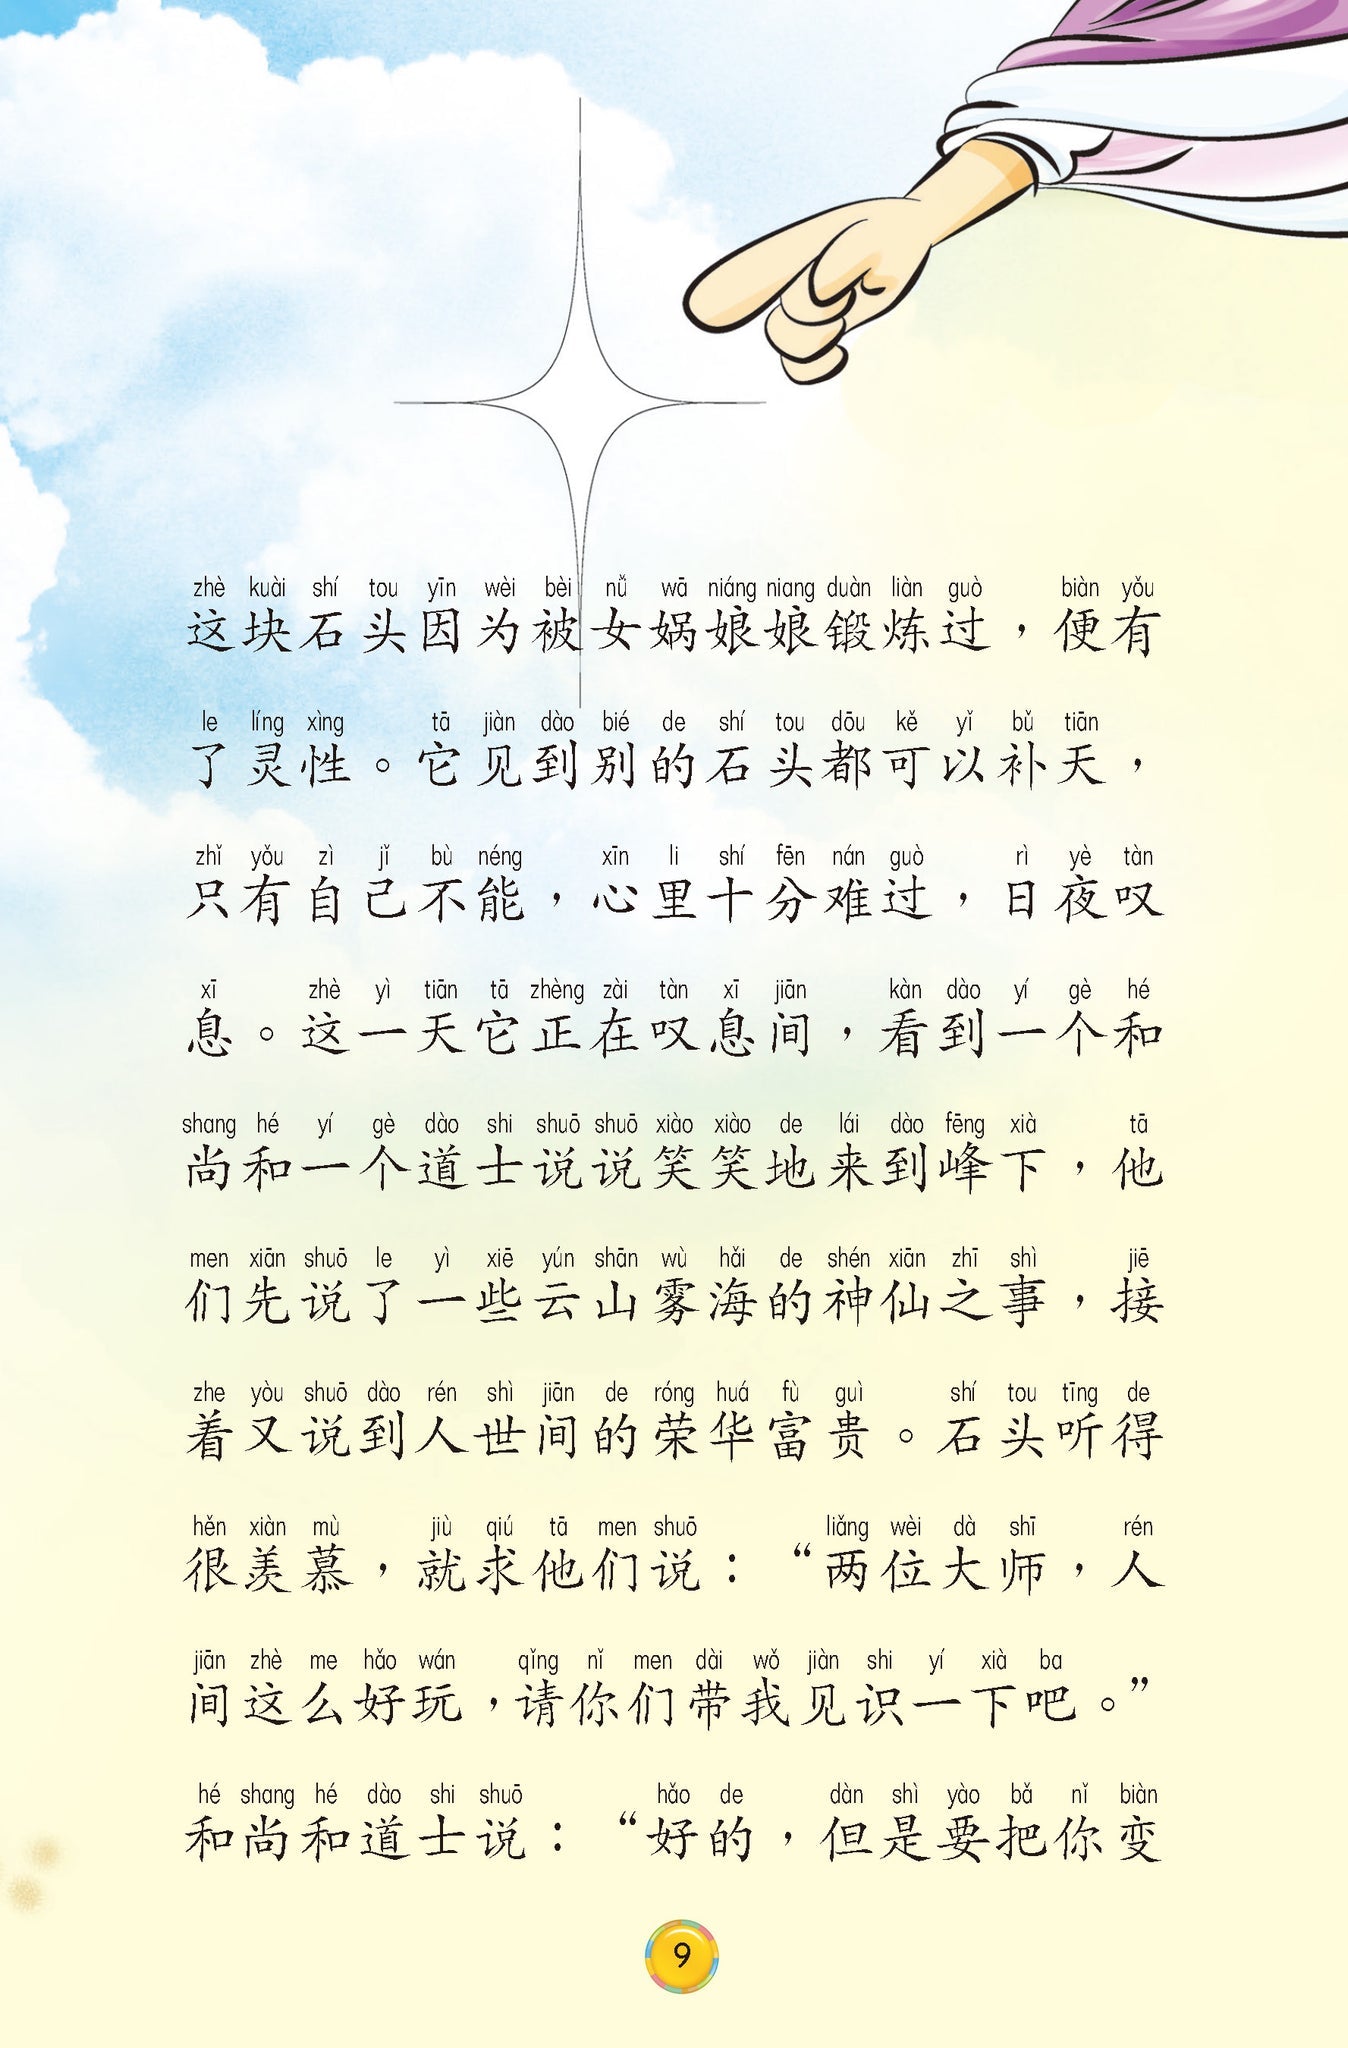 zhè kuài shí tou yīn wèi bèi nǚ wā niáng niang duàn liàn guò biàn yǒu
这块石头因为被女娲娘娘锻炼过，便有
le líng xìng tā jiàn dào bié de shí tou dōu kě yǐ bǔ tiān
了灵性。它见到别的石头都可以补天，
zhǐ yǒu zì jǐ bù néng xīn li shí fēn nán guò rì yè tàn
只有自己不能，心里十分难过，日夜叹
xī zhè yì tiān tā zhèng zài tàn xī jiān kàn dào yí gè hé
息。这一天它正在叹息间，看到一个和
shang hé yí gè dào shi shuō shuō xiào xiào de lái dào fēng xià tā
尚和一个道士说说笑笑地来到峰下，他
men xiān shuō le yì xiē yún shān wù hǎi de shén xiān zhī shì jiē
们先说了一些云山雾海的神仙之事，接
zhe yòu shuō dào rén shì jiān de róng huá fù guì shí tou tīng de
着又说到人世间的荣华富贵。石头听得
hěn xiàn mù jiù qiú tā men shuō liǎng wèi dà shī rén
很羡慕，就求他们说：“两位大师，人
jiān zhè me hǎo wán qǐng nǐ men dài wǒ jiàn shi yí xià ba
间这么好玩，请你们带我见识一下吧。”
hé shang hé dào shi shuō hǎo de dàn shì yào bǎ nǐ biàn
和尚和道士说：“好的，但是要把你变
9